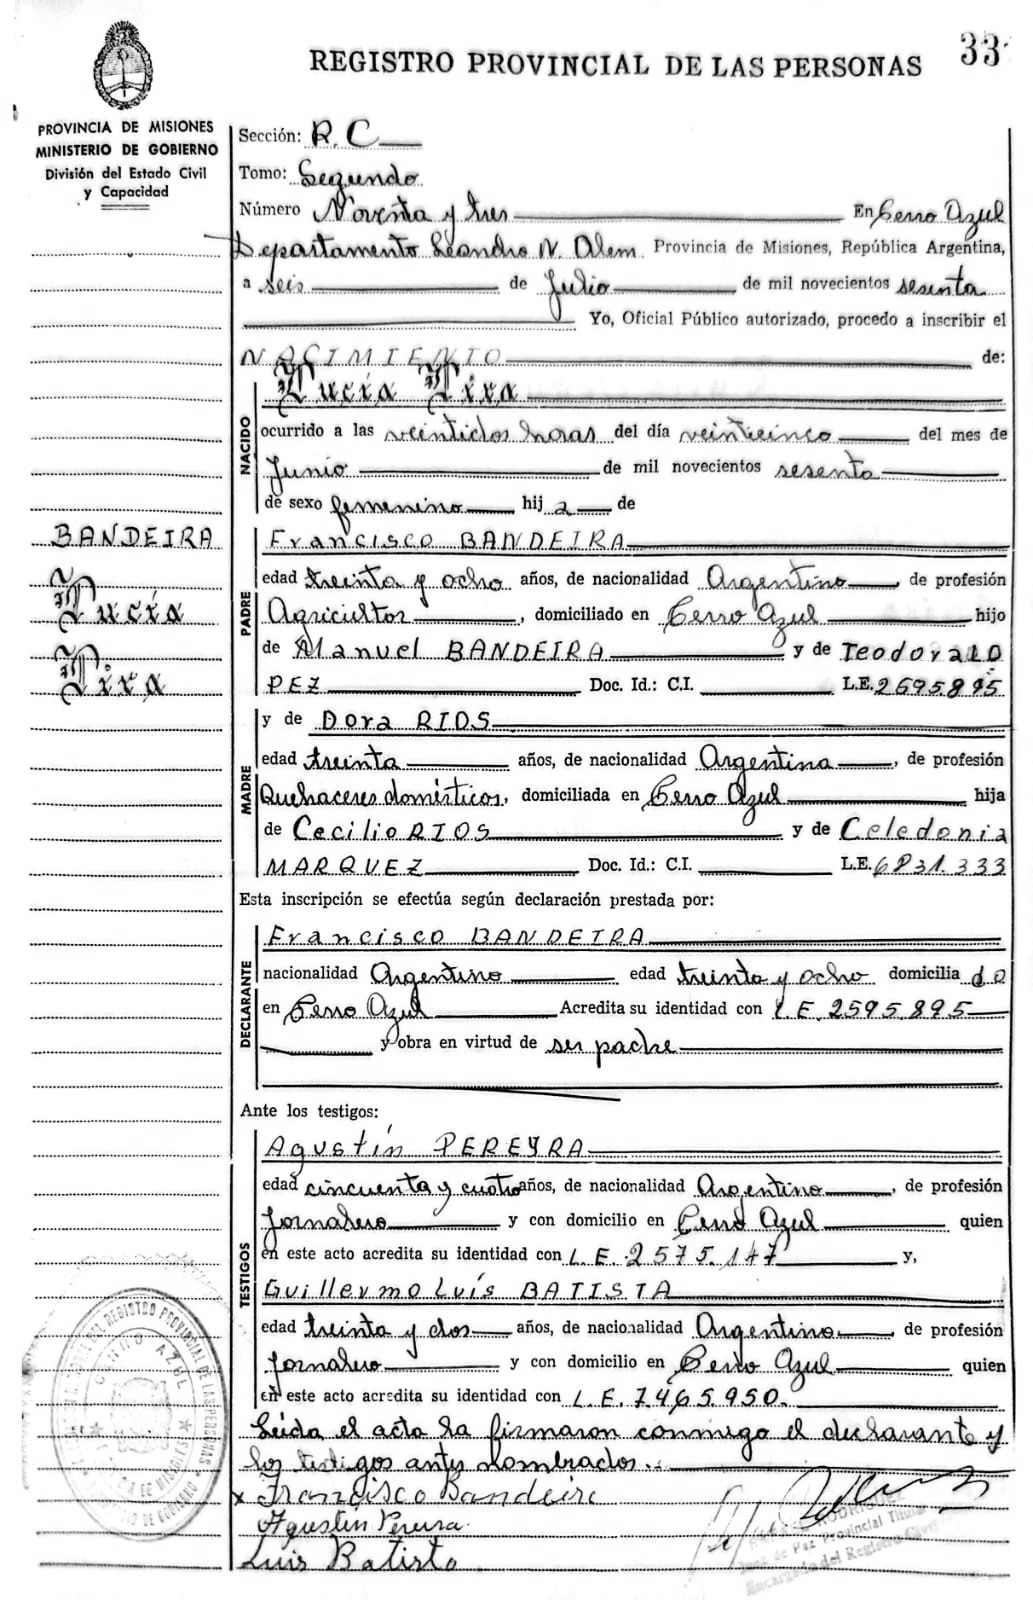 33
REGISTRO PROVINCIAL DE LAS PERSONAS
PROVINCIA DE MISIONES
MINISTERIO DE GOBIERNO
División del Estado Civil
y Capacidad
Sección: R. C
Tomo: Segundo
Número Noventa y tres En Cerro Azul
Departamento Leandro N. Alem. Provincia de Misiones, República Argentina,
a seis de Julio de mil novecientos sesenta
Yo, Oficial Público autorizado, procedo a inscribir el
NACIMIENTO de:
NACIDO
Lucía
ocurrido a las veintidos horas del día veinticinco del mes de
Junio de mil novecientos sesenta
de sexo femenino hij a de
BANDEIRA
Lucía
PADRE
Francisco BANDEIRA
edad treinta y ocho años, de nacionalidad Argentino, de profesión
Agricultor, domiciliado en Cerro Azul hijo
de Manuel BANDEIRA y de Teodora LO
PEZ Doc. Id.: C.I. L.E. 2595895
MADRE
y de Dora RIOS
edad treinta años, de nacionalidad Argentina, de profesión
Quehaceres domésticos, domiciliada en Cerro Azul hija
de Cecilio RIOS y de Celedonia
MARQUEZ Doc. Id.: C.I. L.E. 6831.333
Esta inscripción se efectúa según declaración prestada por:
DECLARANTE
Francisco BANDEIRA
nacionalidad Argentino edad treinta y ocho domicilia do
en Cerro Azul Acredita su identidad con L.E. 2595.895
y obra en virtud de ser padre
Ante los testigos:
TESTIGOS
Agustín PEREYRA
edad cincuenta y cuatro años, de nacionalidad Argentino, de profesión
Jornalero y con domicilio en Cerro Azul quien
en este acto acredita su identidad con L.E. 2575.147 y,
Guillermo Luís BATISTA
edad treinta y dos años, de nacionalidad Argentino, de profesión
Jornalero y con domicilio en Cerro Azul quien
en este acto acredita su identidad con L.E. 7465.950.
Leída el acta la firmaron conmigo el declarante y
los testigos antes nombrados.
x Francisco Bandeira
Agustin Pereira
Luis Batista
RODRIGUEZ
Juez de Paz Provincial Titular
Encargado del Registro Civil
CERRO AZUL